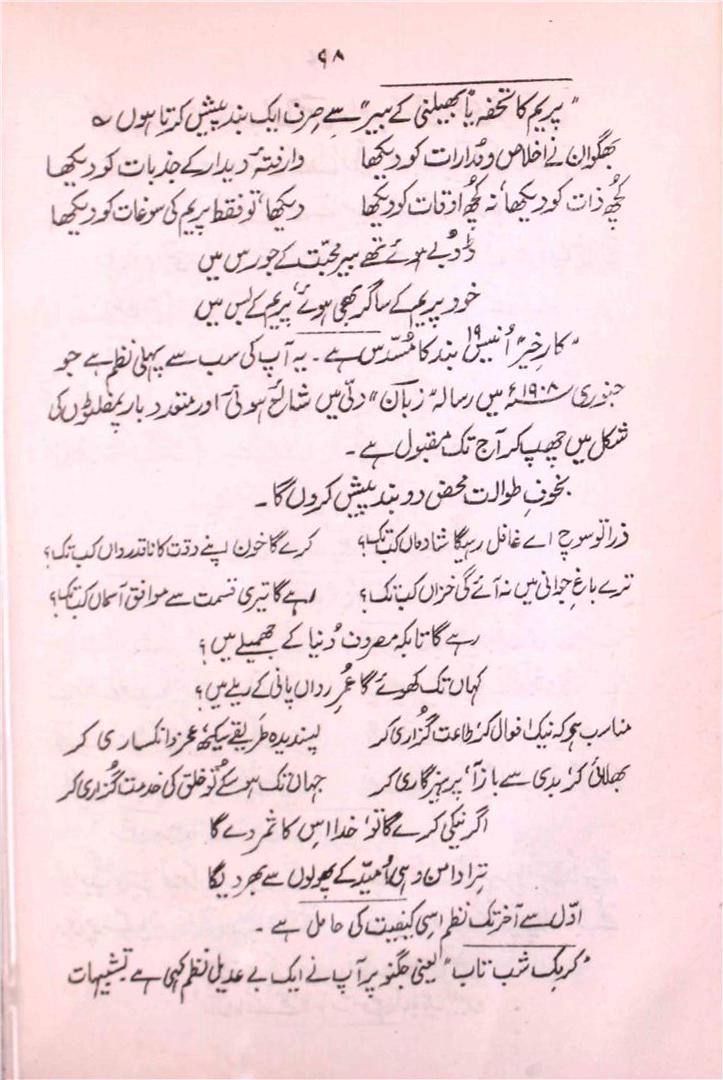 ۹۸
"پریم کا تحفہ یا بھیلنی کے بیر" سے صرف ایک بند پیش کرتا ہوں ؎
بھگوان نے اخلاص و مُدارات کو دیکھا وارفتۂ دیدار کے جذبات کو دیکھا
کچُھ ذات کو دیکھا، نہ کچُھ اوقات کو دیکھا دیکھا، تو فقط پریم کی سوغات کو دیکھا
ڈوبے ہوئے تھے بیر محبّت کے جو رس میں
خود پریم کے ساگر بھی ہوئے، پریم کے بس میں
"کارِ خیر" اُنیس ۱۹ بند کا مُسدّس ہے۔ یہ آپ کی سب سے پہلی نظم ہے جو
جنوری ۱۹۰۸ء میں رسالہ "زبان" دلّی میں شائع ہوئی اور متعدد بار پمفلٹوں کی
شکل میں چھپ کر آج تک مقبول ہے۔
بخوفِ طوالت محض دو بند پیش کروں گا۔
ذرا تو سوچ اے غافل رہیگا شادماں کب تک؟ کرے گا خون اپنے وقت کا ناقدرداں کب تک؟
ترے باغِ جوانی میں نہ آئے گی خزاں کب تک؟ رہے گا تیری قسمت سے موافق آسماں کب تک؟
رہے گا تابکہ مصروف دُنیا کے جھمیلے میں؟
کہاں تک کھوئے گا عُمرِ رواں پانی کے ریلے میں؟
مناسب ہے کہ نیک افعال کر، طاعت گزُاری کر پسندیدہ طریقے سیکھ، عجز و انکساری کر
بھلائی کر، بدی سے باز آ، پرہیزگاری کر جہاں تک ہو سکے تو خلق کی خدمت گزُاری کر
اگر نیکی کرے گا تو، خدا اس کا ثمر دے گا
ترا دامن وہی اُمید کے پھولوں سے بھر دیگا
اوّل سے آخر تک نظم اسی کیفیت کی حامل ہے۔
"کرمک شب تاب" یعنی جگنو پر آپ نے ایک بے عدیل نظم کہی ہے تشبیہات